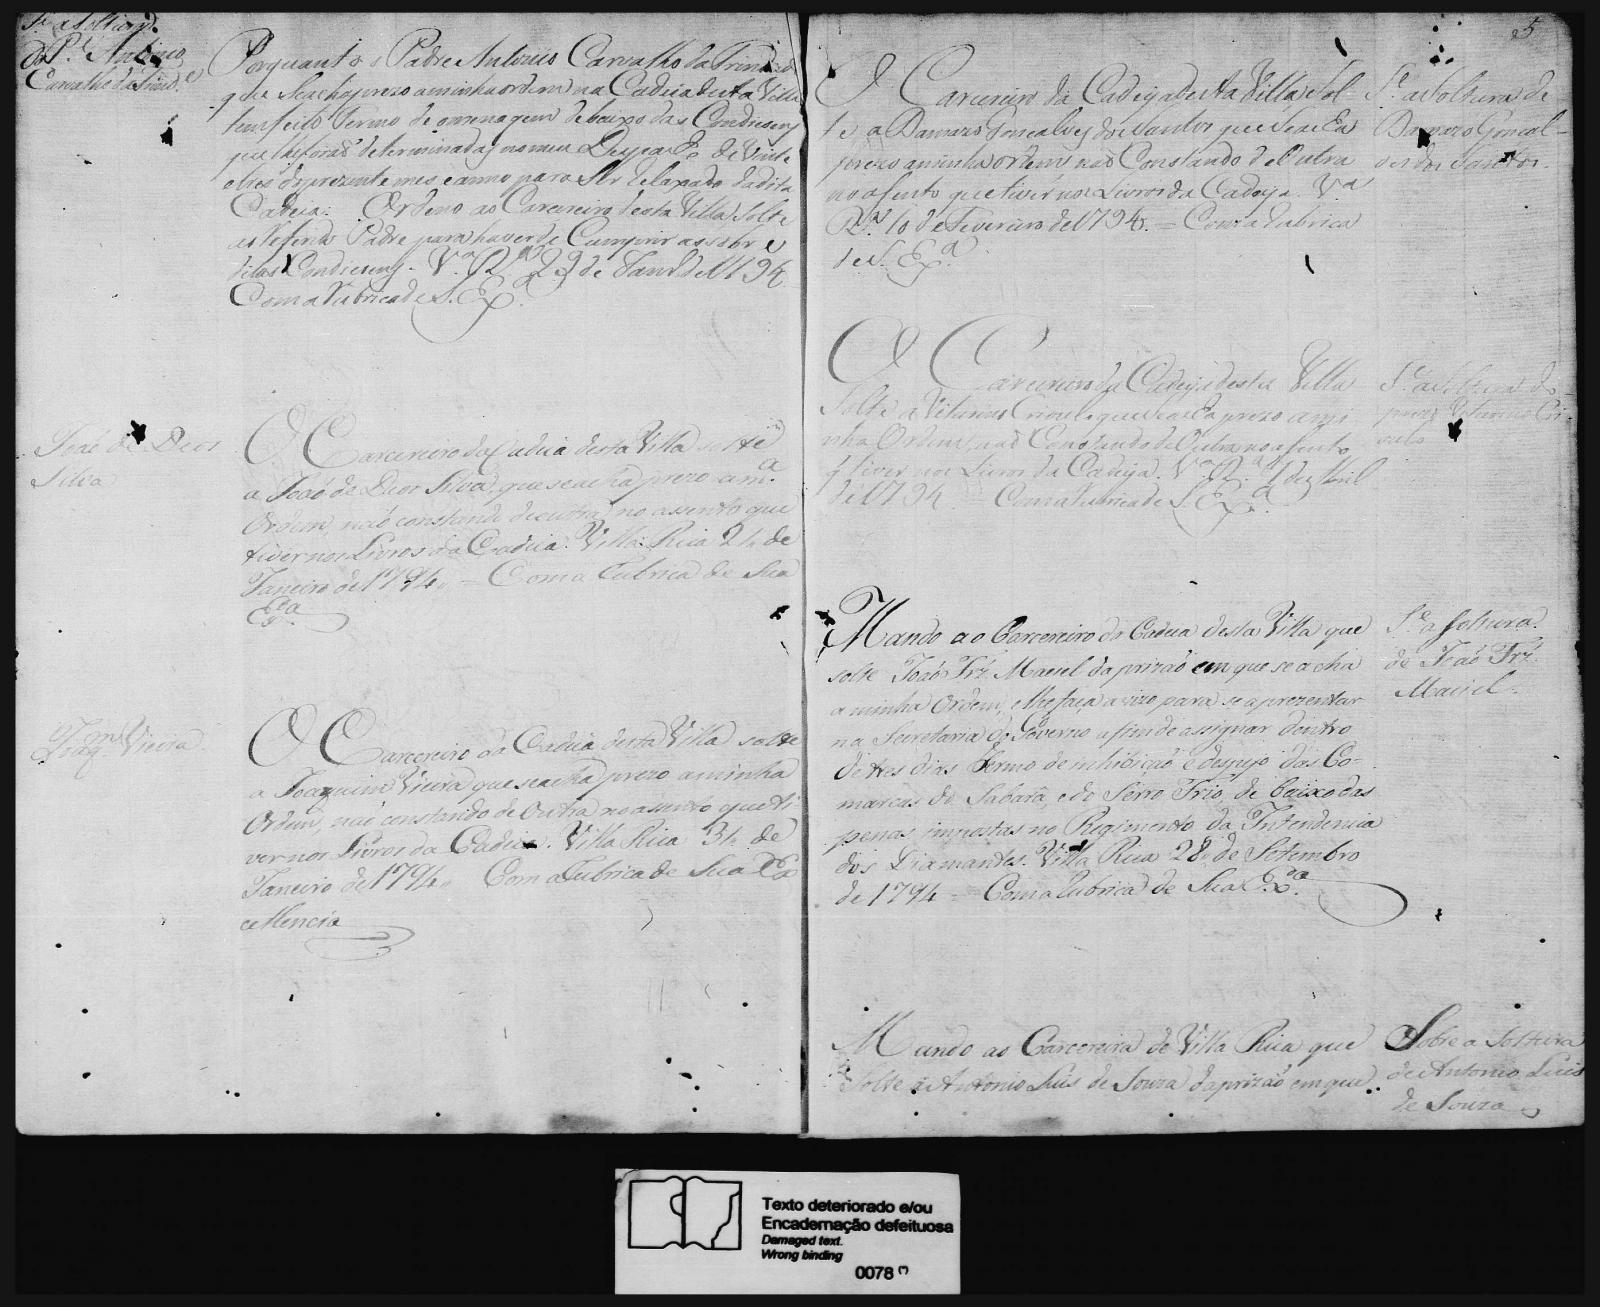 Sᵉ a soltura
do Pᵉ Antonio
Carvalho da Trindᵉ
Porquanto o Padre Antonio Carvalho da Trindade
que se acha prezo a minha ordem na Cadeia desta Villa
tem feito Termo de omenagem debaixo das Condiçoens
que lhe foraõ determinadas no meu Despacho de vinte
e tres do prezente mes e anno para ser relaxado da dita
Cadeia: Ordeno ao Carcereiro desta Villa, solte
ao referido Padre para haver de Cumprir as sobre
ditas Condiçoens. Vᵃ Rᵃ 29 de Janrº de 1794
Com a Rubrica de S. Exᵃ
Joaõ de Deos
Silva
O Carcereiro da Cadeia desta Villa solte
a Joaõ de Deos Silva, que se acha prezo a mᵃ
Ordem, naõ constando de outra, no assento que
tiver nos Livros da Cadeia. Villa Rica 21 de
Janeiro de 1794 = Com a Rubrica de Sua
Exᵃ
Joaqᵐ Vieira
O Carcereiro da Cadeia desta Villa solte
a Joaquim Vieira que se acha prezo a minha
Ordem, naõ constando de Outra no assento que ti
ver nos Livros da Cadeia. Villa Rica 31 de
Janeiro de 1794 Com a Rubrica de Sua Ex
cellencia
5
O Carcereiro da Cadeya desta Villa Sol-
te a Damazo Goncalves dos Santos que se acha
prezo a minha ordem naõ Constando de Outra
no asento que tiver nos Livros da Cadeya. Vᵃ
Rᵃ 10 de Fevereiro de 1794. = Com a Rubrica
de S. Exᵃ
Sᵉ a Soltura de
Damazo Goncal-
ves dos Santos.
O Carcereiro da Cadeya desta Villa
Solte a Viturino Crioulo que se acha prezo a mi
nha Ordem, naõ Constando de Outra no asento
q̃ tiver nos Livros da Cadeya. Vᵃ Rᵃ 1 de Abril
de 1794 Com a Rubrica de S. Exᵃ
Sᵉ a Soltura do
prezo Viturino Cri-
oulo
Mando ao Carcereiro da Cadeia desta Villa que
solte Joaõ Frz̃ Maciel da prizaõ em que se acha
a minha Ordem, e lhe faça avizo para se aprezentar
na Secretaria do Governo afim de assignar dentro
de tres dias Termo de inhibiçaõ e despejo das Co-
marcas do Sabará, e do Serro Frio, de baixo das
penas impostas no Regimento da Intendencia
dos Diamantes. Villa Rica 28 de Setembro
de 1794 = Com a Rubrica de Sua Exᵃ
Sᵉ a soltura
de Joaõ Frz̃
Maciel.
Mando ao Carcereiro de Villa Rica que
Solte a Antonio Luis de Souza da prizaõ em que
Sobre a Soltura
de Antonio Luis
de Souza
Texto deteriorado e/ou
Encadernação defeituosa
Damaged text.
Wrong binding
0078 (*)